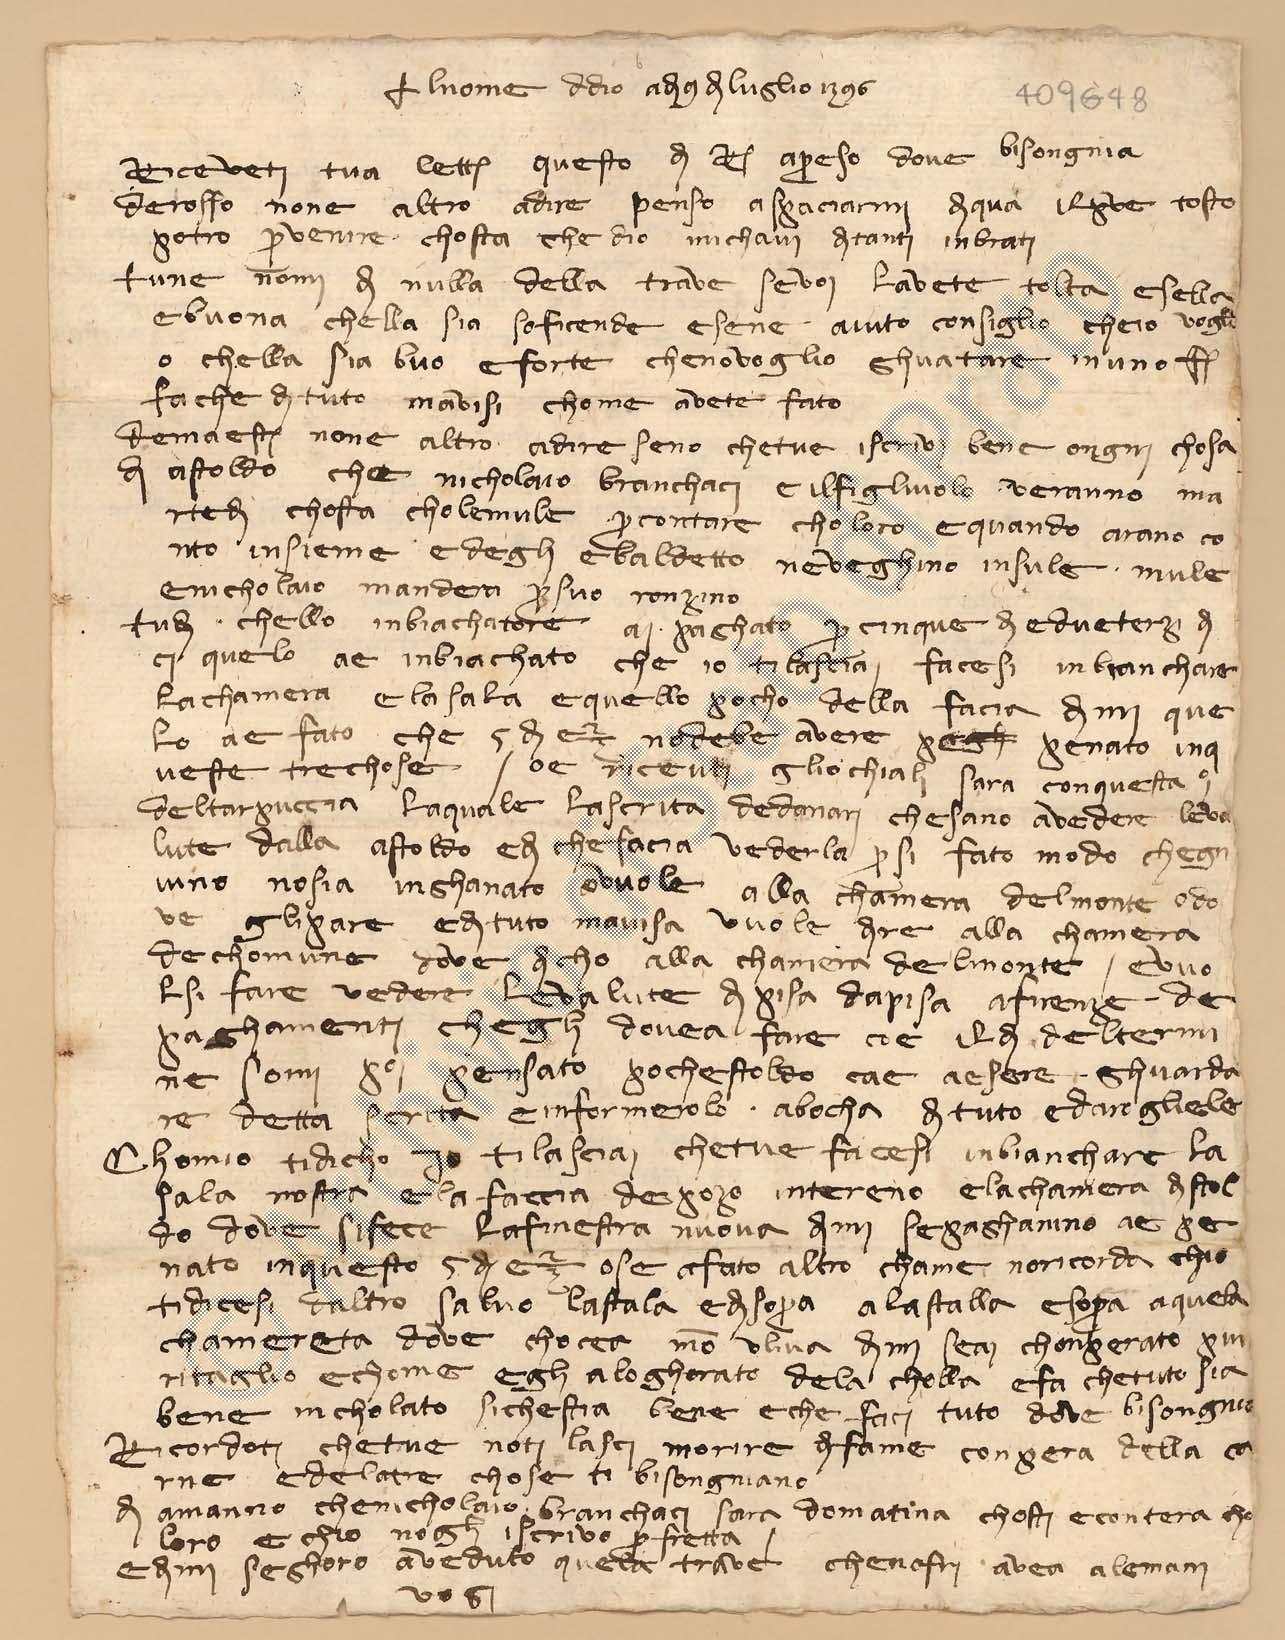 ✝ lnome ddio adj 9 dj luglio 1396
409648
Riceveti tua lettj questo dj Rj apreso dove bisongnia
derosso none altro adire penso aspaciarmi djqua ilpiue tosto
potro pervenire chosta che dio michavi djtanti inbrati
tune nomi dj nulla della trave sevoj lavete tolta esella
ebuona chella sia soficende esene aiuto consiglio cheio vogli
o chella sia buo eforte chenovoglio ghuatare inuno ff
fache djtuto mavisi chome avete fato
demaestj none altro adire seno chetue iscrivj bene ongni chosa
dj astoldo che nicholaio branchacj e ilfigliuolo veranno ma
rtedj chosta cholemule per contare choloro equando arano co
nto insieme edeglj ebaldetto neveghino insule mule
enicholaio mandera persuo ronzino
tudj chello inbiachatore aj paghato per cinque dj edueterzi dj
cj quelo ae inbiachato che io tilasciaj facesi inbianchare
lachamera elasala equello pocho della facia djmi que
lo ae fato che 5 dj e 2/3 nodebe avere penato inq
ueste trechose / oe riceuti gliochialj sara conquesta
deltarpuccia laquale lascrita dedanari chesano avedere leva
lute dalla astoldo edj chefacia vederla persi fato modo chegn
iuno nosia inghanato ovuole alla chamera delmonte odo
ve glipare edjtuto mavisa vuole djre alla chamera
dechomune dove djcho alla chamera delmonte / evuo
lsi fare vedere levalute dj pisa dapisa afirenze de
paghamenti cheglj dovea fare cioe ildj deltermi
ne somi poj pensato pochestoldo cae aesere ghuarda
re detta scrita einformerolo abocha djtuto edarogliele
Chomio tidicho io tilasciaj chetue facesi inbianchare la
sala nostra ela faccia depozo intereno elachamera djstol
do dove sifece lafinestra nuova djmi sepaghanino ae pe
nato inquesto 5 dj e 2/3 ose afato altro chame noricorda chio
tidicesi daltro salvo lastala edjsopra alastalla esopra aquela
chamereta dove chocea mo uliva djmi seaj chonperato piu
ritaglio echome eglj aloghorato dela cholla efa chetuto sia
bene nicholaio sichestia bene eche facj tuto dove bisongnia
Ricordoti chetue noti lasci morire djfame conpera della ca
rne edelatre chose ti bisongniano
dj amanno chenicholaio branchacj sara domatina chosti econtera cho
loro e chio noglj iscrivo perfretta /
edjmi seghoro aveduto quela trave chenofri avea alemani
vosj